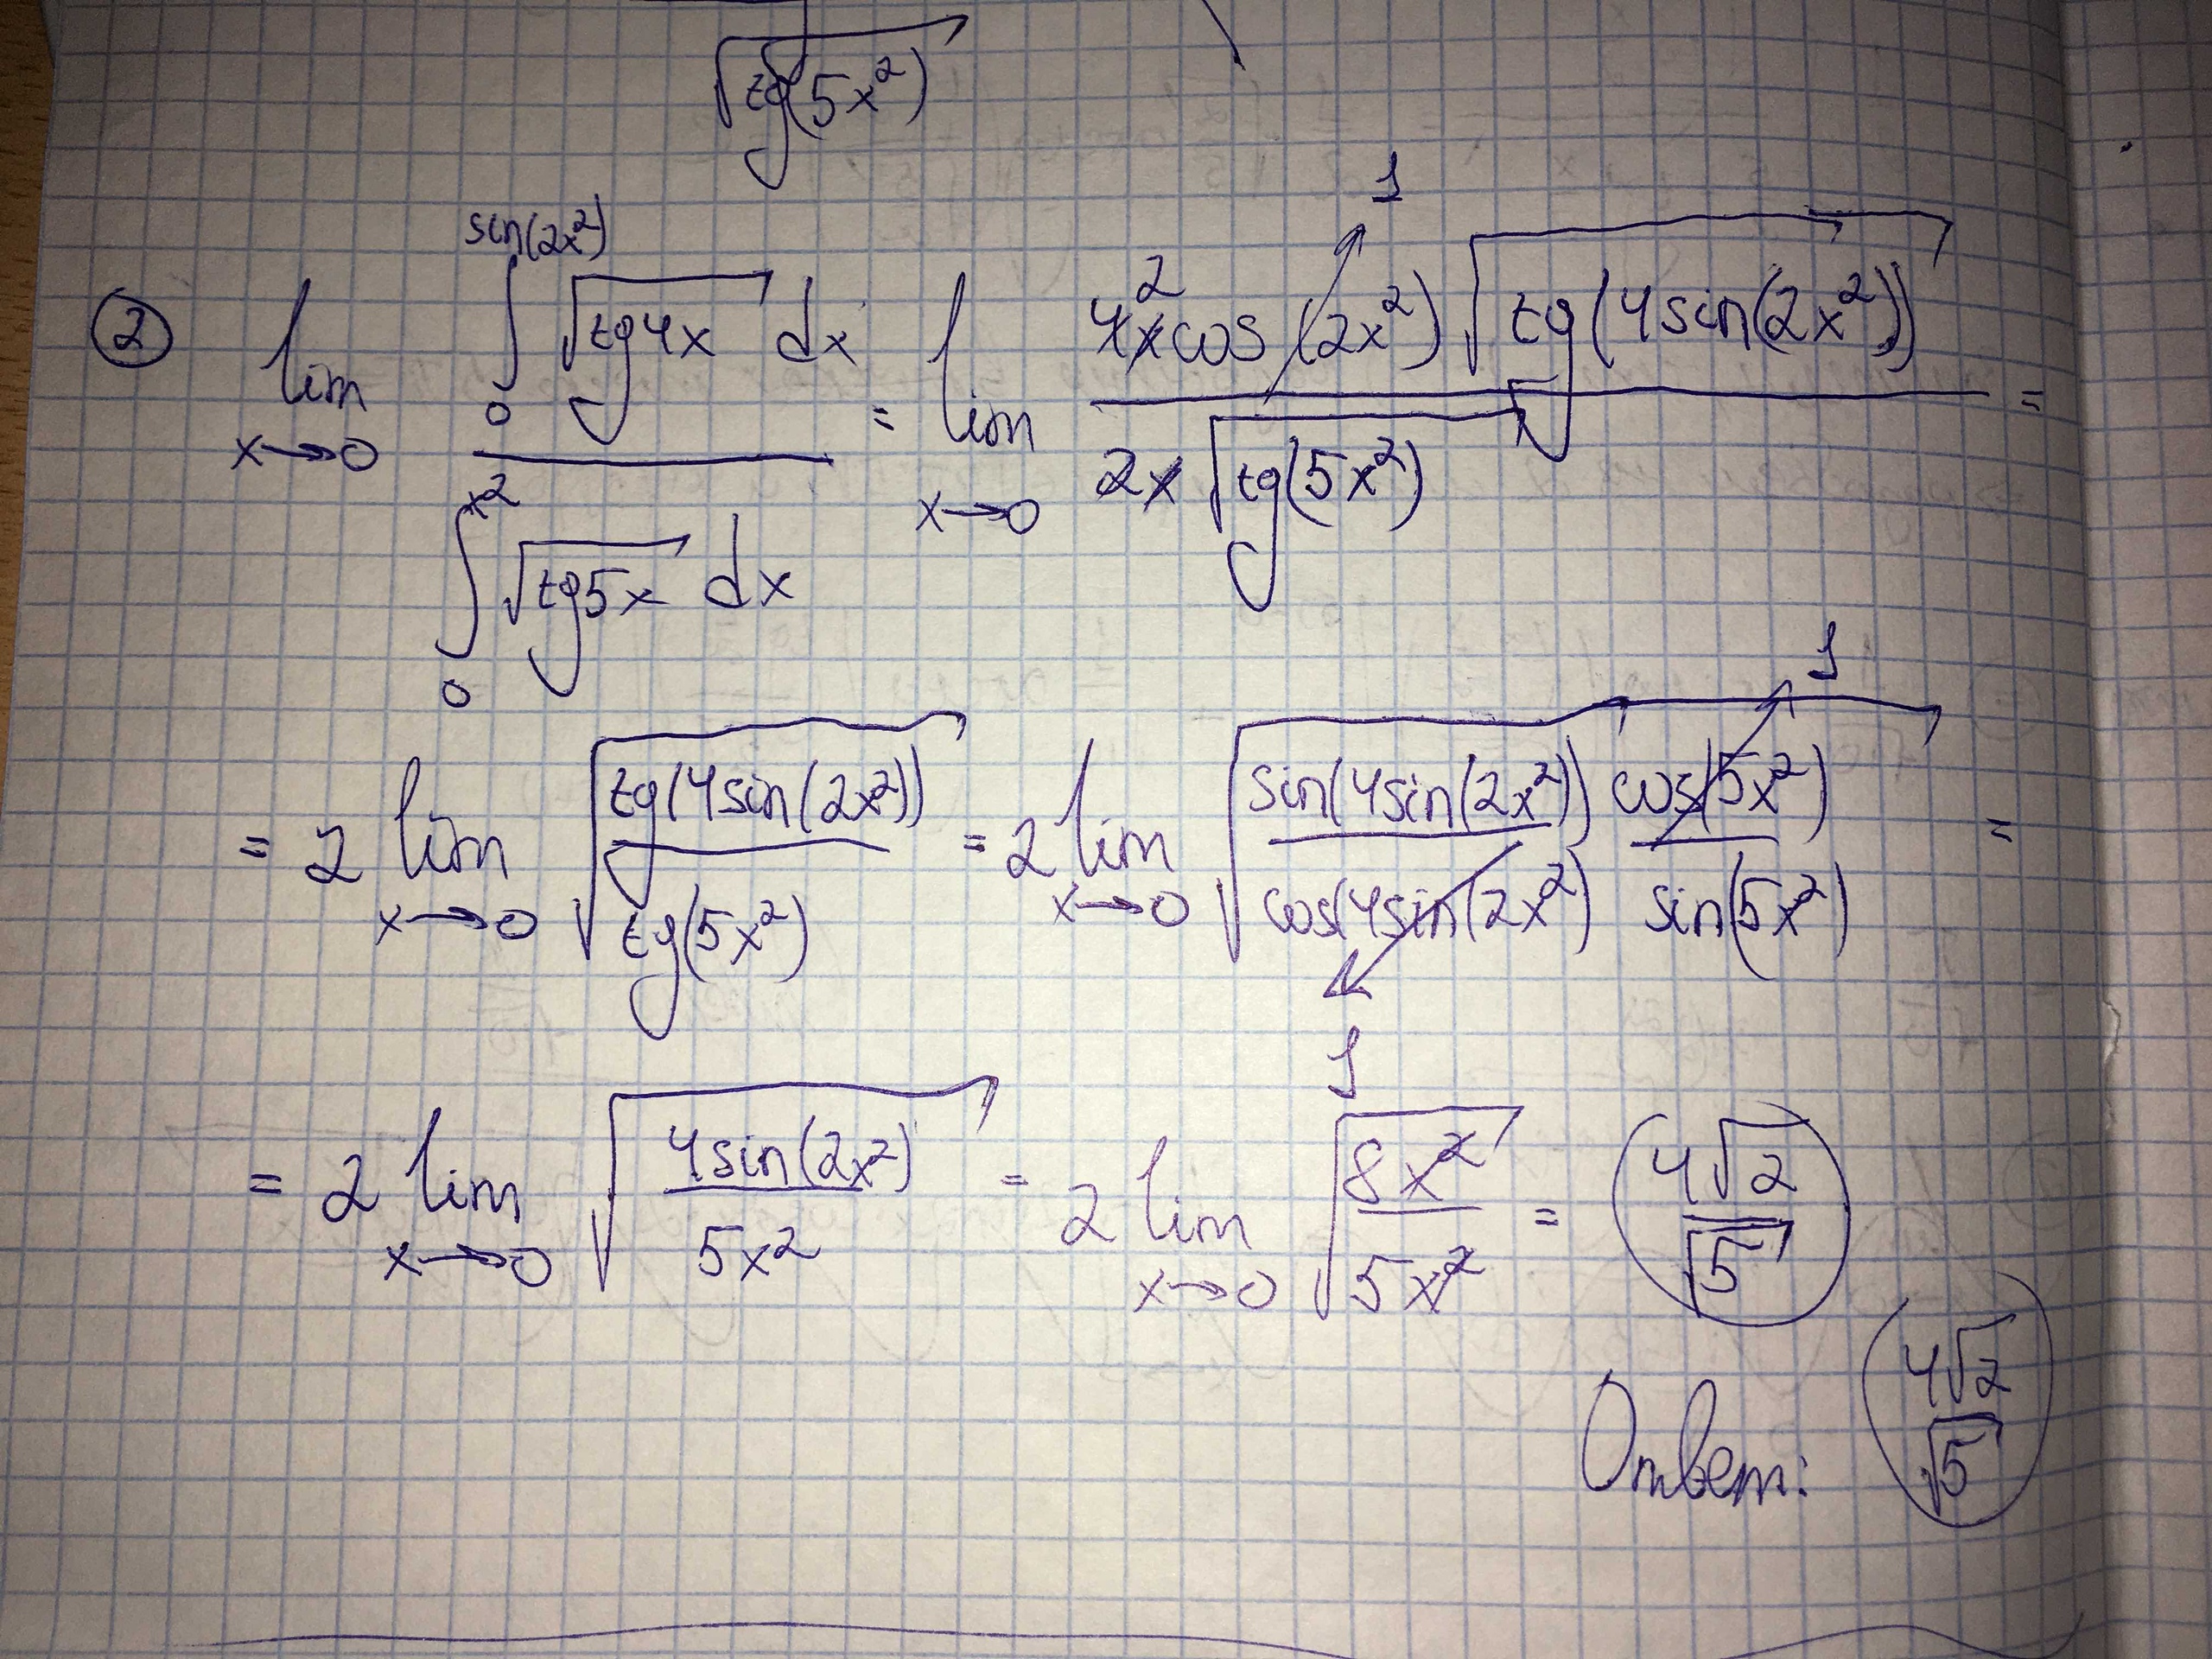 √tg(5x²)
② lim x→0 ∫₀^sin(2x²) √tg4x dx / ∫₀^x² √tg5x dx = lim x→0 4x cos(2x²) √tg(4sin(2x²)) / 2x √tg(5x²) =
2 1
= 2 lim x→0 √(tg(4sin(2x²)) / tg(5x²)) = 2 lim x→0 √(sin(4sin(2x²)) cos(5x²) / cos(4sin(2x²) sin(5x²)) =
1 1
= 2 lim x→0 √(4sin(2x²) / 5x²) = 2 lim x→0 √(8x² / 5x²) = 4√2 / √5
Ответ: 4√2 / √5